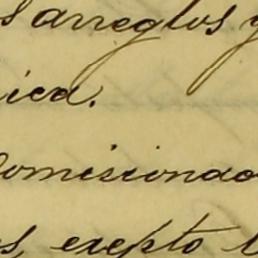 s arreglos y
ica.
omisionao
s, exepto